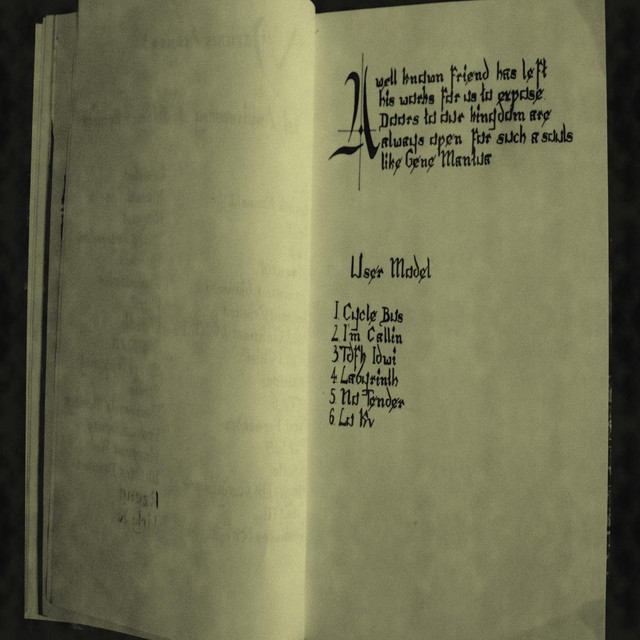 A well known friend has left
his works for us to expose
Doors to our kingdom are
always open for such a souls
like Gene Manlus
User Model
1 Cycle Bus
2 I'm Callin
3 Toph Idwi
4 Labyrinth
5 No Tender
6 Lo Kv